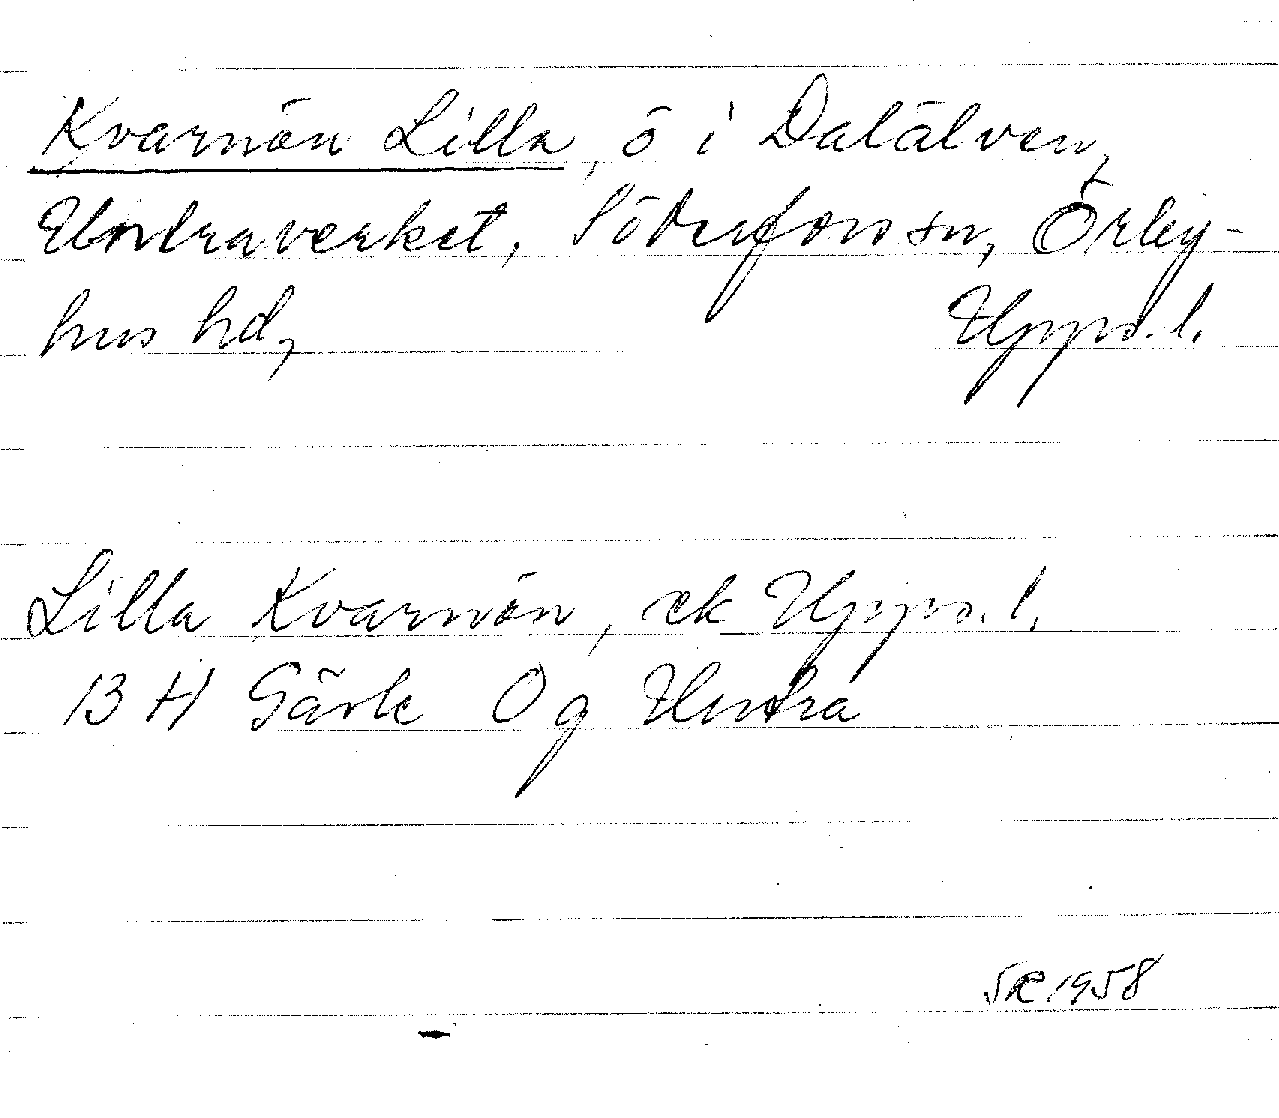 Kvarnön Lilla, ö i Dalälven,
Untraverket, Söderfors sn, Örby-
hus hd, Upps. l.
Lilla Kvarnön, ek Upps. l.
13 H Gävle 0 g Untra
SR 1958